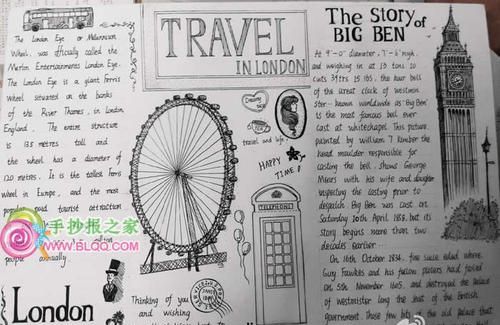 The London Eye or Millennium
Wheel was officially called the
Merlin Entertainments London Eye.
The London Eye is a giant ferris
wheel situated on the banks
of the River Thames, in London,
England. The entire structure
is 135 meters tall and
the wheel has a diameter of
120 metres. It is the tallest ferris
wheel in Europe, and the most
popular paid tourist attraction
people annually
手抄报之家
www.SLQQ.com
London
TRAVEL
IN LONDON
travel and life,
HAPPY
TIME!
TELEPHONE
Thinking of you
and wishing
The Story of
BIG BEN
At 9'-0" diameter, 7'-6" high,
and weighing in at 13 tons 10
cwts 3qtrs 15 lbs, the hour bell
of the great clock of westmin
ster-known worldwide as 'Big Ben'
is the most famous bell ever
cast at whitechapel. This picture,
painted by william T Kimber the
head moulder responsible for
casting the bell, shows George
Mears with his wife and daughter
inspecting the casting prior to
despatch. Big Ben was cast on
Saturday 10th April 1858, but its
story begins more than two
decades earlier...
On 16th October 1834, fire succe eded where
Guy Fawkes and his fellow plotters had failed
on 5th November 1605, and destroyed the palace
of westminster long the seat of the British
government. Those few bits of the old palace that